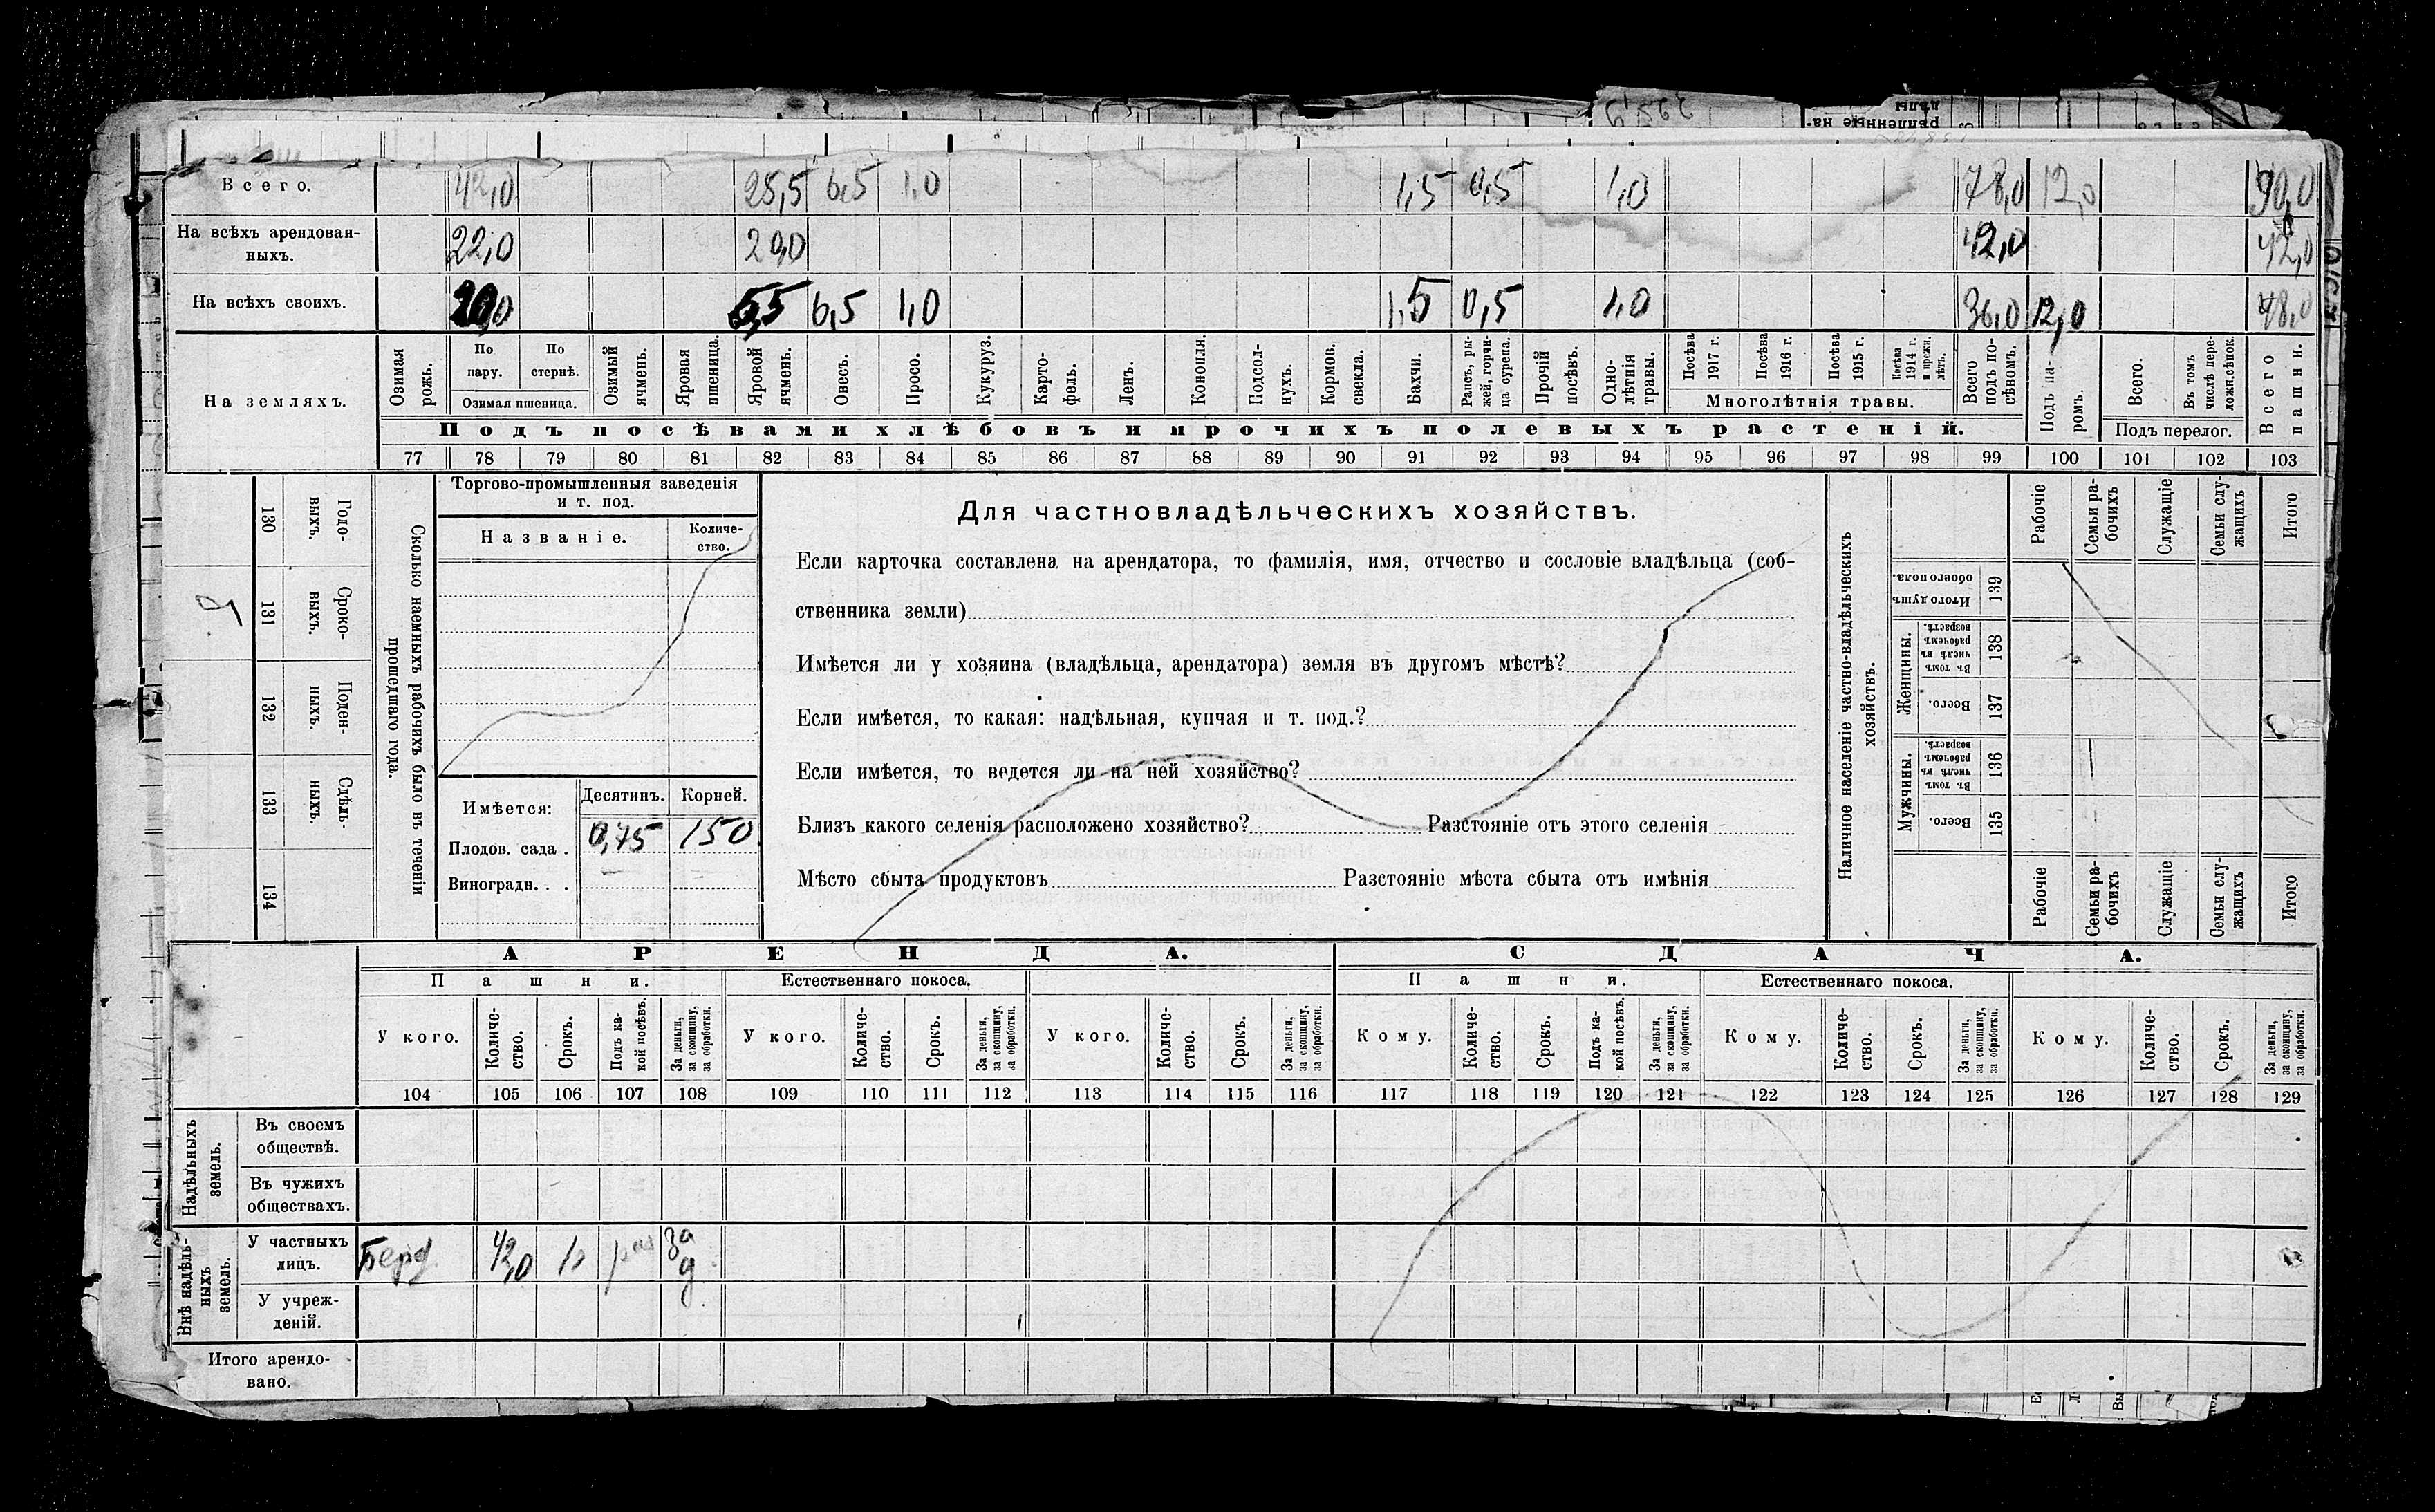 Всего. 42,0 25,5 6,5 1,0 1,5 0,5 1,0 78,0 12,0 90,0
На всѣхъ арендован-
ныхъ. 22,0 20,0 42,0 42,0
На всѣхъ своихъ. 20,0 5,5 6,5 1,0 1,5 0,5 1,0 36,0 12,0 48,0
На земляхъ.
Озимая рожь.
По пару.
По стернѣ.
Озимая пшеница.
Озимый ячмень.
Яровая пшеница.
Яровой ячмень.
Овесъ.
Просо.
Кукуруз.
Карто-
фель.
Ленъ.
Конопля.
Подсол-
нухъ.
Кормов. свекла.
Бахчи.
Рапсъ, ры-
жей, горчи-
ца сурепа.
Прочій посѣвъ.
Одно-
лѣтнія травы.
Посѣва 1917 г.
Посѣва 1916 г.
Посѣва 1915 г.
Посѣва 1914 г. и прежн. лѣтъ.
Многолѣтнія травы.
Всего подъ по-
сѣвомъ.
Подъ па-
ромъ.
Всего.
Въ томъ числѣ пере-
ложн.сѣнок.
Подъ перелог.
Всего пашни.
Подъ посѣвами хлѣбовъ и прочихъ полевыхъ растеній.
77 78 79 80 81 82 83 84 85 86 87 88 89 90 91 92 93 94 95 96 97 98 99 100 101 102 103
Сколько наемныхъ рабочихъ было въ теченіи
прошедшаго года.
Годо-
выхъ.
130
Сроко-
выхъ.
131
Поден-
ныхъ.
132
Сдѣль-
ныхъ.
133
134
Торгово-промышленныя заведенія
и т. под.
Названіе.
Количе-
ство.
Имѣется: Десятин. Корней.
Плодов. сада . 0,75 150
Виноградн. . .
Для частновладѣльческихъ хозяйствъ.
Если карточка составлена на арендатора, то фамилія, имя, отчество и сословіе владѣльца (соб-
ственника земли)
Имѣется ли у хозяина (владѣльца, арендатора) земля въ другомъ мѣстѣ?
Если имѣется, то какая: надѣльная, купчая и т. под.?
Если имѣется, то ведется ли на ней хозяйство?
Близъ какого селенія расположено хозяйство? Разстояніе отъ этого селенія
Мѣсто сбыта продуктовъ Разстояніе мѣста сбыта отъ имѣнія
Наличное населеніе частно-владѣльческихъ
хозяйствъ.
Рабочіе
Семьи ра-
бочихъ
Служащіе
Семьи слу-
жащихъ
Итого
Итого душъ обоего пола.
139
Женщины.
Въ томъ числѣ въ рабочемъ возрастѣ.
138
Всего.
137
Мужчины.
Въ томъ числѣ въ рабочемъ возрастѣ.
136
Всего.
135
Рабочіе
Семьи ра-
бочихъ
Служащіе
Семьи слу-
жащихъ
Итого
АРЕНДА. СДАЧА.
Пашни. Естественнаго покоса. Пашни. Естественнаго покоса.
У кого.
Количе-
ство.
Срокъ.
Подъ ка-
кой посѣвъ.
За деньги, за скопщину, за обработки.
У кого.
Количе-
ство.
Срокъ.
За деньги, за скопщину, за обработки.
У кого.
Количе-
ство.
Срокъ.
За деньги, за скопщину, за обработки.
Кому.
Количе-
ство.
Срокъ.
Подъ ка-
кой посѣвъ.
За деньги, за скопщину, за обработки.
Кому.
Количе-
ство.
Срокъ.
За деньги, за скопщину, за обработки.
Кому.
Количе-
ство.
Срокъ.
За деньги, за скопщину, за обработки.
104 105 106 107 108 109 110 111 112 113 114 115 116 117 118 119 120 121 122 123 124 125 126 127 128 129
Надѣльныхъ земель.
Въ своемъ
обществѣ.
Въ чужихъ
обществахъ.
Внѣ надѣль-
ныхъ земель.
У частныхъ
лицъ. 42,0 за
д
У учреж-
деній.
Итого арендо-
вано.